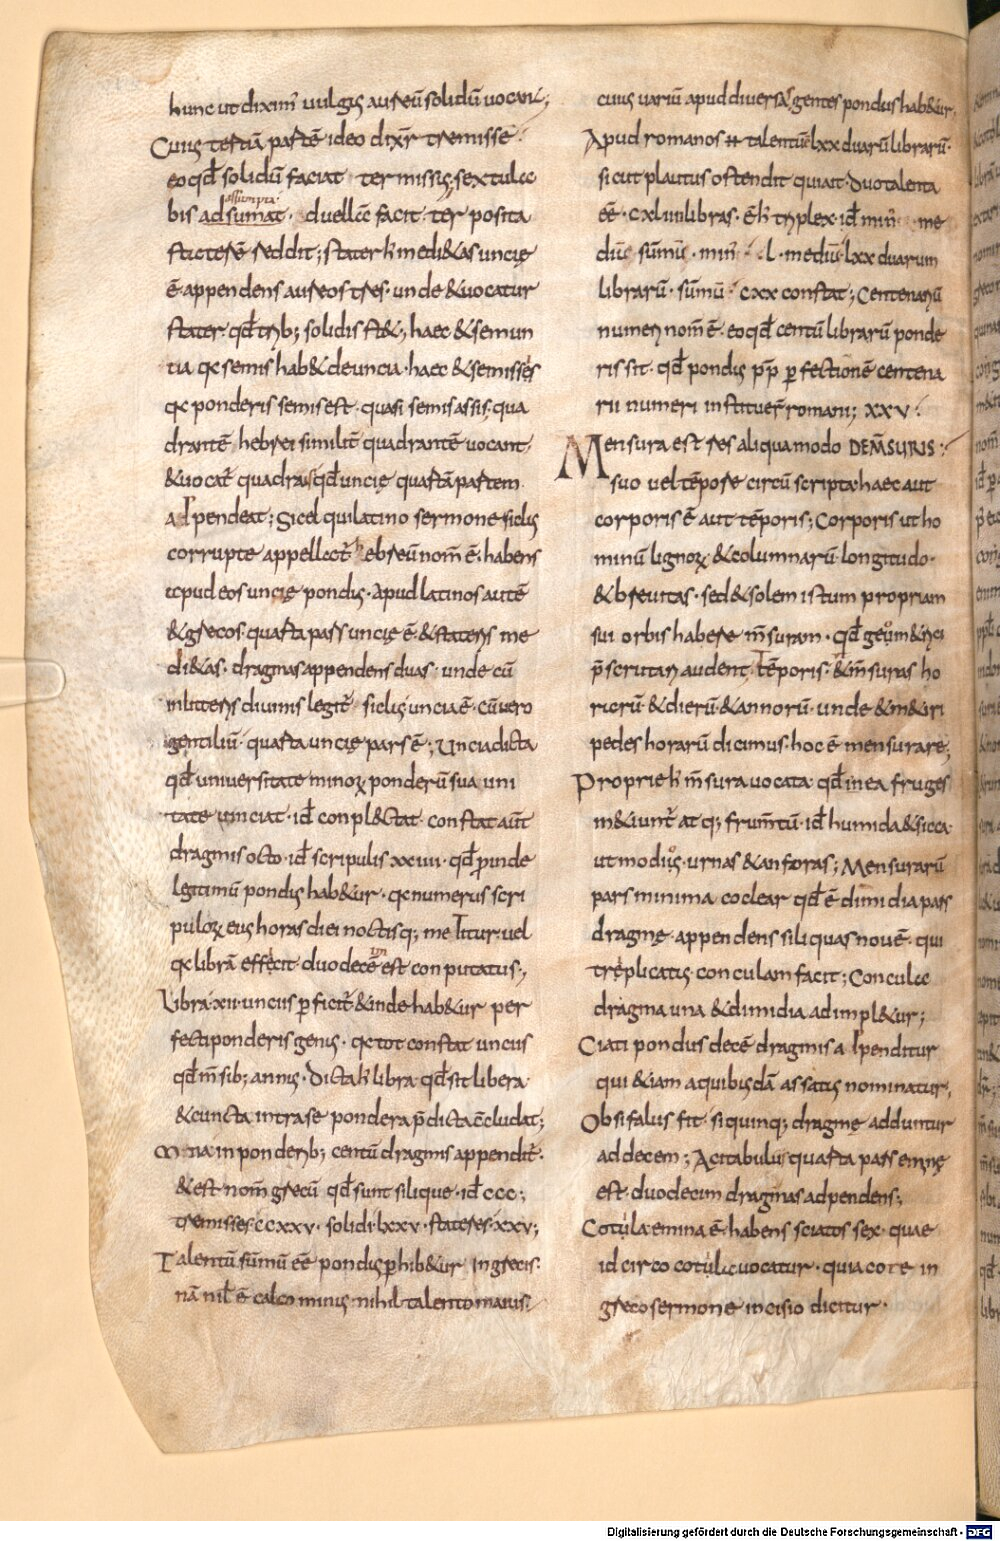 hunc ut diximꝰ uulgꝰ aureū solidū uocant;
Cuiꝰ tertiā partē ideo dixr̄ tremissē
eo qđ solidū faciat ter missꝰ; sextula
assumpta
bis adsumat · duella facit · ter posita
staterē reddit; stater h̄ medi&as unciȩ
ē appendens aureos tres · unde & uocatur
stater · qđ trib; solidis st&; haec & semun
tia qa semis hab& de uncia · haec & semissis
qa ponderis semis est · quasi semis assis · qua
drantē hebrei similit̄ quadrantē uocant
& uocat̄ quadras qđ unciȩ quartā partem
adpendeat; Sicel qui latino sermone siclꝰ
corrupte appellat̄ hebreū nom̄ ē; habens
apud eos unciȩ pondꝰ · Apud latinos autē
& grecos quarta pars unciȩ ē · & stateris me
di&as · dragmas appendens duas · unde cū
in litteris diuinis legit̄ siclꝰ uncia ē · cū uero
gentiliū · quarta unciȩ pars ē; Uncia dicta
qđ uniuersitatē minoꝝ ponderū sua uni
tate uinciat · id̄ conpl&tat · constat aūt
dragmis octo · id̄ scripulis xxiiii · qđ ꝓinde
legitimū pondꝰ hab&ur · qa numerus scri
puloꝝ eiꝰ horas diei noctisq; metitur · uel
qa librā effecit duodeciēs est conputatus;
Libra · xii · unciis ꝑficit̄ & inde hab&ur per
fecti ponderis genꝰ · qa tot constat unciis
qđ m̄sib; annꝰ · Dicta h̄ libra qđ sit libera
& cuncta intra se pondera p̄dicta c̄cludat;
Mna in ponderib; centū dragmis appendit̄ ·
& est nom̄ grecū qđ sunt silique · id̄ ccc;
tremisses ccxxv · solidi · lxxv · stateres · xxv;
Talentū sūmū eē pondꝰ ꝑhib&ur in grecis ·
nā nil ē calco minꝰ nihil talento maius;
cuiꝰ uariū apud diuersas gentes pondus hab&ur,
Apud romanos talentū ē lxx duarū librarū ·
sicut plautus ostendit qui ait · Duo talenta
eē · cxliiii libras · Ē h̄ triplex · id̄ minꝰ me
diū · sūmū · minꝰ · l · mediū lxx duarum
librarū · sūmū cxx constat; Centenariū
numeri nom̄ ē · eo qđ centū librarū ponde
ris sit · qđ pondꝰ ꝓp̄ ꝑfectionē centena
rii numeri instituer̄ romani; xxv ·
Mensura est res aliqua modo DE M̄SURIS ·
suo uel tēpore circūscripta · haec aut
corporis ē aut tēporis; Corporis ut ho
minū lignoꝝ & columnarū longitudo ·
& breuitas · sed & solem istum propriam
sui orbis habere m̄suram · qđ geom&rici
p̄scrutari audent; Tēporis · & m̄suras ho
rarū & dierū · & annorū · unde & m&iri
pedes horarū dicimus · hoc ē mensurare;
Proprie h̄ m̄sura uocata qđ in ea fruges
m&iunt̄ atq; frum̄tū · id̄ humida & sicca
ut modiꝰ · urnas & anforas; Mensurarū
pars minima coclear qđ ē dimidia pars
dragmȩ · appendens siliquas nouē · qui
triplicatꝰ conculam facit; Concula
dragma una & dimidia adimpl&ur;
Ciati pondus decē dragmis adpenditur
qui & iam a quibꝰdā assatis nominatur,
Obsifalus fit · si quinq; dragmȩ adduntur
ad decem; Acitabulus quarta pars eminȩ
est · duodecim dragmas adpendens;
Cotula emina ē · habens sciatos sex · quae
id circo cotula uocatur · quia cote in
greco sermone incisio dicitur ·
Digitalisierung gefördert durch die Deutsche Forschungsgemeinschaft - DFG